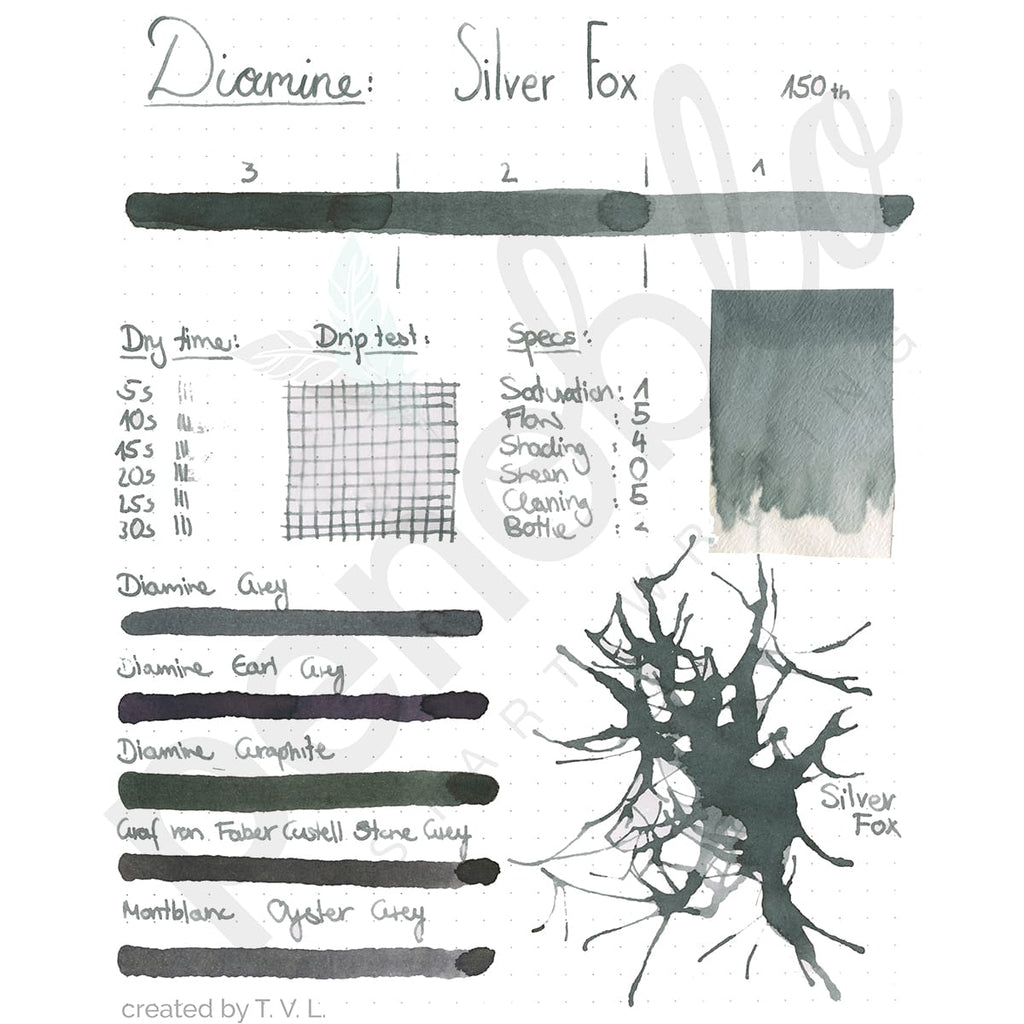 Diamine: Silver Fox 150th
3 | 2 | 1
Dry time:
5s
10s
15s
20s
25s
30s
Drip test:
Specs:
Saturation: 1
Flow : 5
Shading : 4
Sheen : 0
Cleaning : 5
Bottle :
Diamine Grey
Diamine Earl Grey
Diamine Graphite
Graf von Faber Castell Stone Grey
Montblanc Oyster Grey
Silver
Fox
penoblo
created by T. V. L.